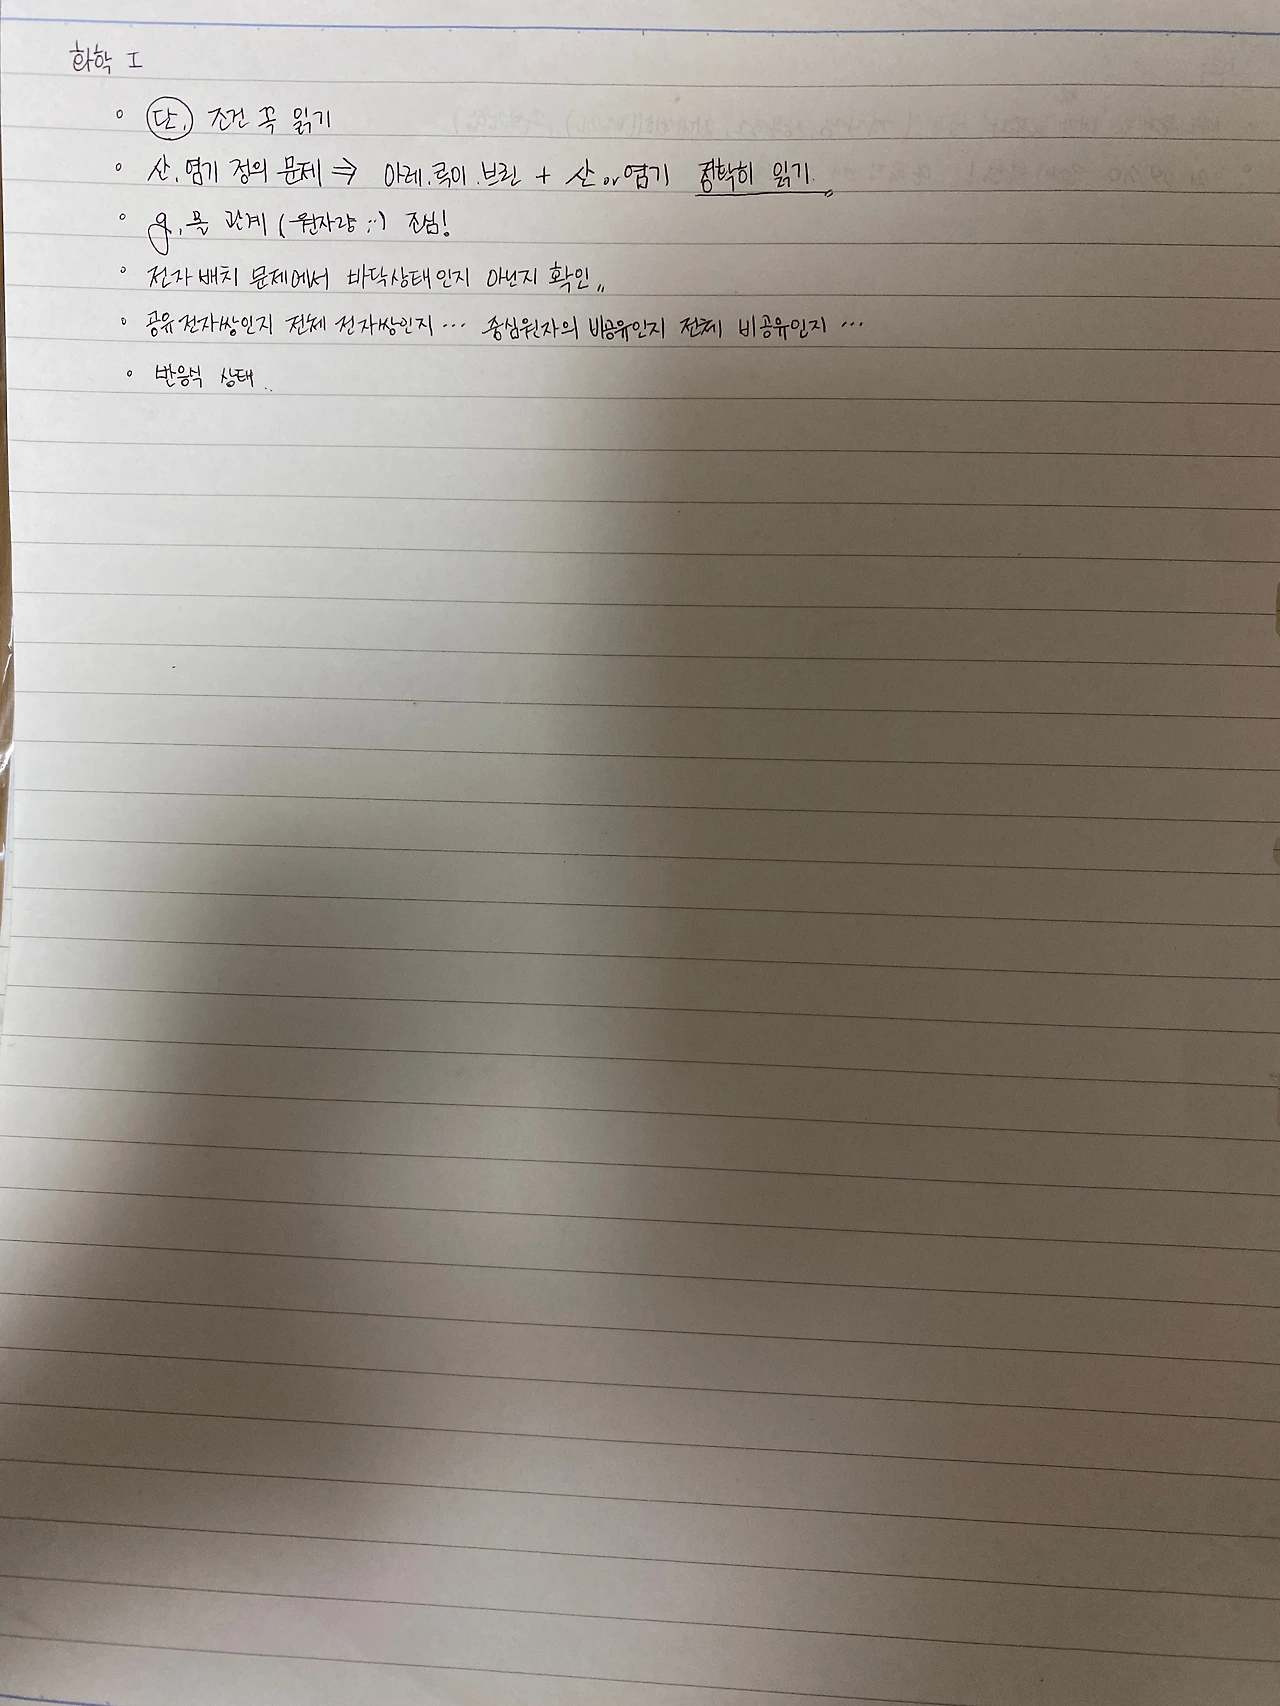 화학 I
◦ 단, 조건 꼭 읽기
◦ 산, 염기 정의 문제 ⇒ 아레.루이.브뢴 + 산 or 염기 정확히 읽기.
◦ g, 몰 관계 (원자량 ;;) 조심!
◦ 전자배치 문제에서 바닥상태인지 아닌지 확인〃
◦ 공유전자쌍인지 전체 전자쌍인지… 중심원자의 비공유인지 전체 비공유인지 …
◦ 반응식 상태..